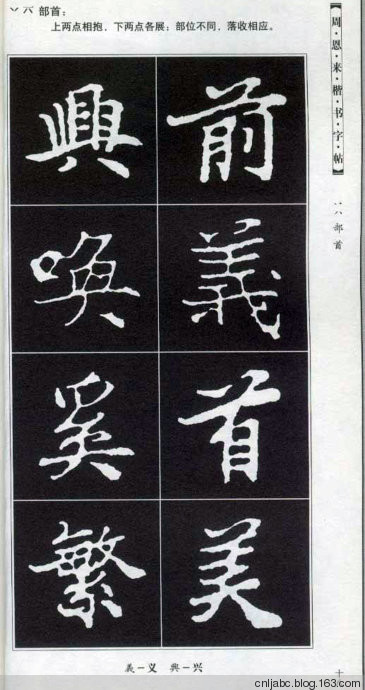 丷八 部首：
上两点相抱，下两点各展；部位不同，落收相应。
【周·恩·来·楷·书·字·帖】
丷八部首
前
義
首
美
興
唤
繁
義－义 興－兴
十
cnljabc.blog.163.com